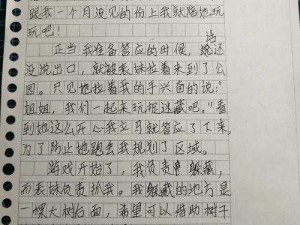 跟我一个月没见的份上我就陪她玩
玩吧！
正当我准备答应的时候，话还
没说出口，就被表妹拉着来到了公
园。只见她拉着我的手兴奋的说："
姐姐，我们一起来玩捉迷藏吧。"看
到她这么开心我立马就答应了下来，
为了防止她跑丢我规划了区域。
游戏开始了，我负责躲藏，
而表妹负责抓我。我躲藏的地方是
一棵大树后面，希望可以借助树干